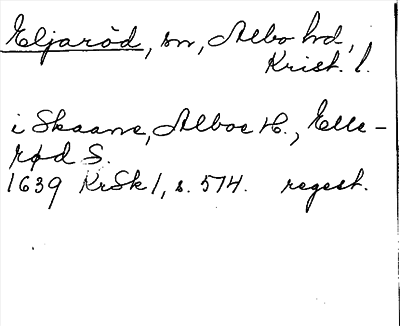 Eljaröd, sn, Albo hd,
Krist. l.
i Skaane, Alboe H., Elle-
rød S.
1639 KrSk 1, s. 574. regest.